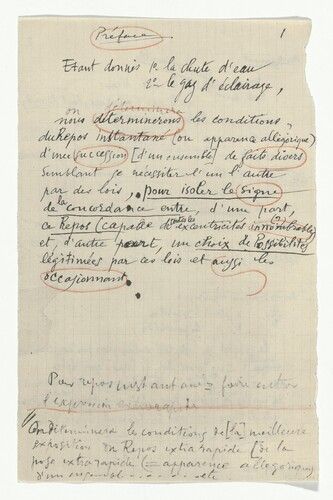 Préface
1
Etant donnés 1e la chute d'eau
2e le gaz d'éclairage,
on déterminera
nous déterminerons les conditions
du Repos instantané (ou apparence allégorique)
d'une succession [d'un ensemble] de faits divers
semblant se nécessiter l'un l'autre
par des lois, pour isoler le signe
de la concordance entre, d'une part,
ce Repos (capable de toutes les excentricités innombrables (?))
et, d'autre part, un choix de Possibilités
légitimées par ces lois et aussi les
occasionnant.
Pour repos instantané = faire entrer
l'expression extra-rapide
On déterminera les conditions de [la] meilleure
exposition du Repos extra rapide [de la
pose extra rapide (= apparence allégorique)
d'un ensemble.... etc